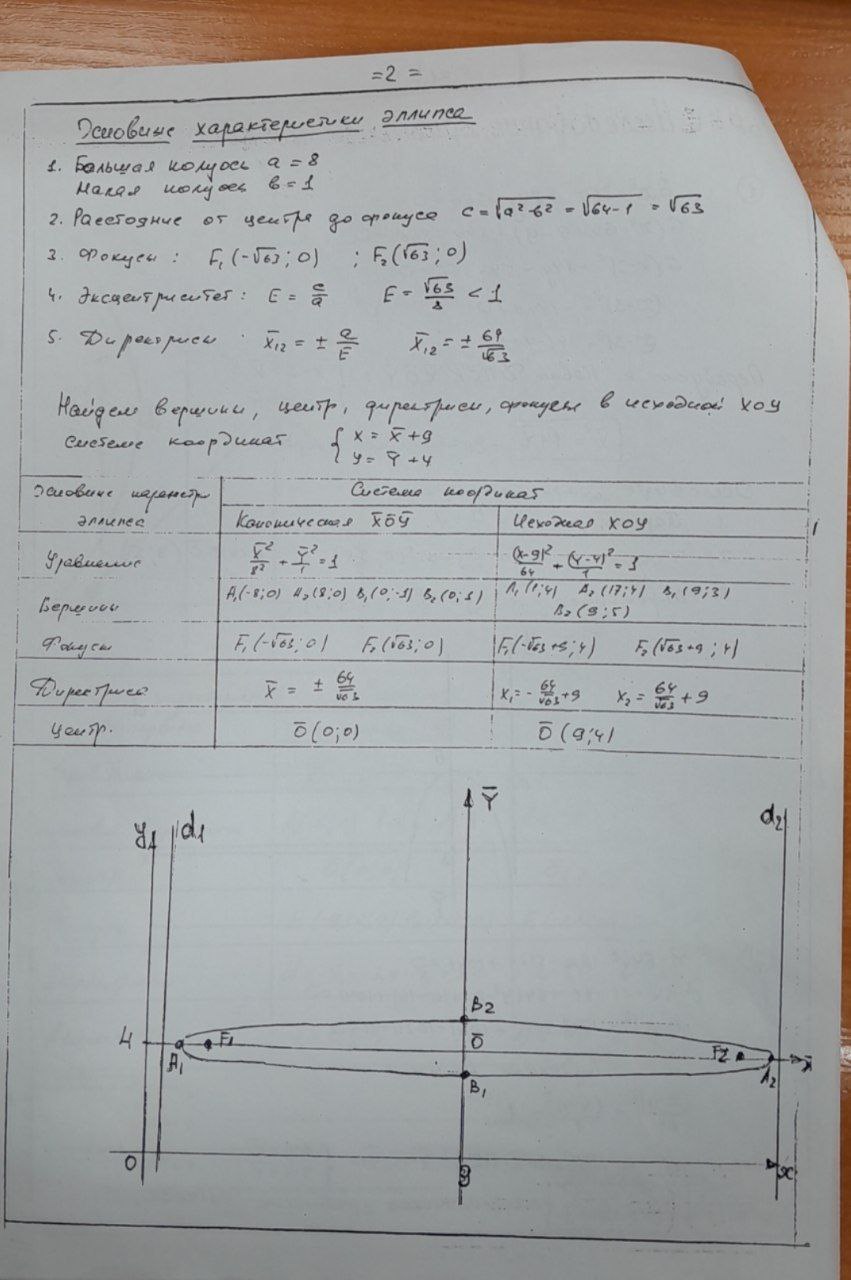 = 2 =
Основные характеристики эллипса
1. Большая полуось a = 8
Малая полуось b = 1
2. Расстояние от центра до фокуса c = √(a² - b²) = √(64-1) = √63
3. Фокусы : F₁ (-√63 ; 0) ; F₂ (√63 ; 0)
4. Эксцентриситет : E = c/a E = √63/8 < 1
5. Директрисы : X̄₁₂ = ± a/E X̄₁₂ = ± 64/√63
Найдем вершины, центр, директрисы, фокусы в исходной XOY
системе координат { x = X̄ + 9
y = Ȳ + 4
Основные параметры эллипса Система координат
Каноническая X̄ŌȲ Исходная XOY
Уравнение X̄²/8² + Ȳ²/1 = 1 (x-9)²/64 + (y-4)²/1 = 1
Вершины A₁(-8;0) A₂(8;0) B₁(0;-1) B₂(0;1) A₁(1;4) A₂(17;4) B₁(9;3)
B₂(9;5)
Фокусы F₁(-√63;0) F₂(√63;0) F₁(-√63+9;4) F₂(√63+9;4)
Директриса X̄ = ± 64/√63 x₁ = - 64/√63 + 9 x₂ = 64/√63 + 9
Центр. Ō (0;0) Ō (9;4)
y d1 Ȳ d2
B2
4 A1 F1 Ō F2 A2 X̄
B1
0 9 x